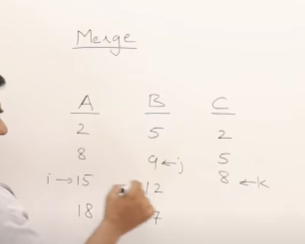 Merge
A B C
2 5 2
8 9 ←j 5
i→15 12 8 ←k
18 7